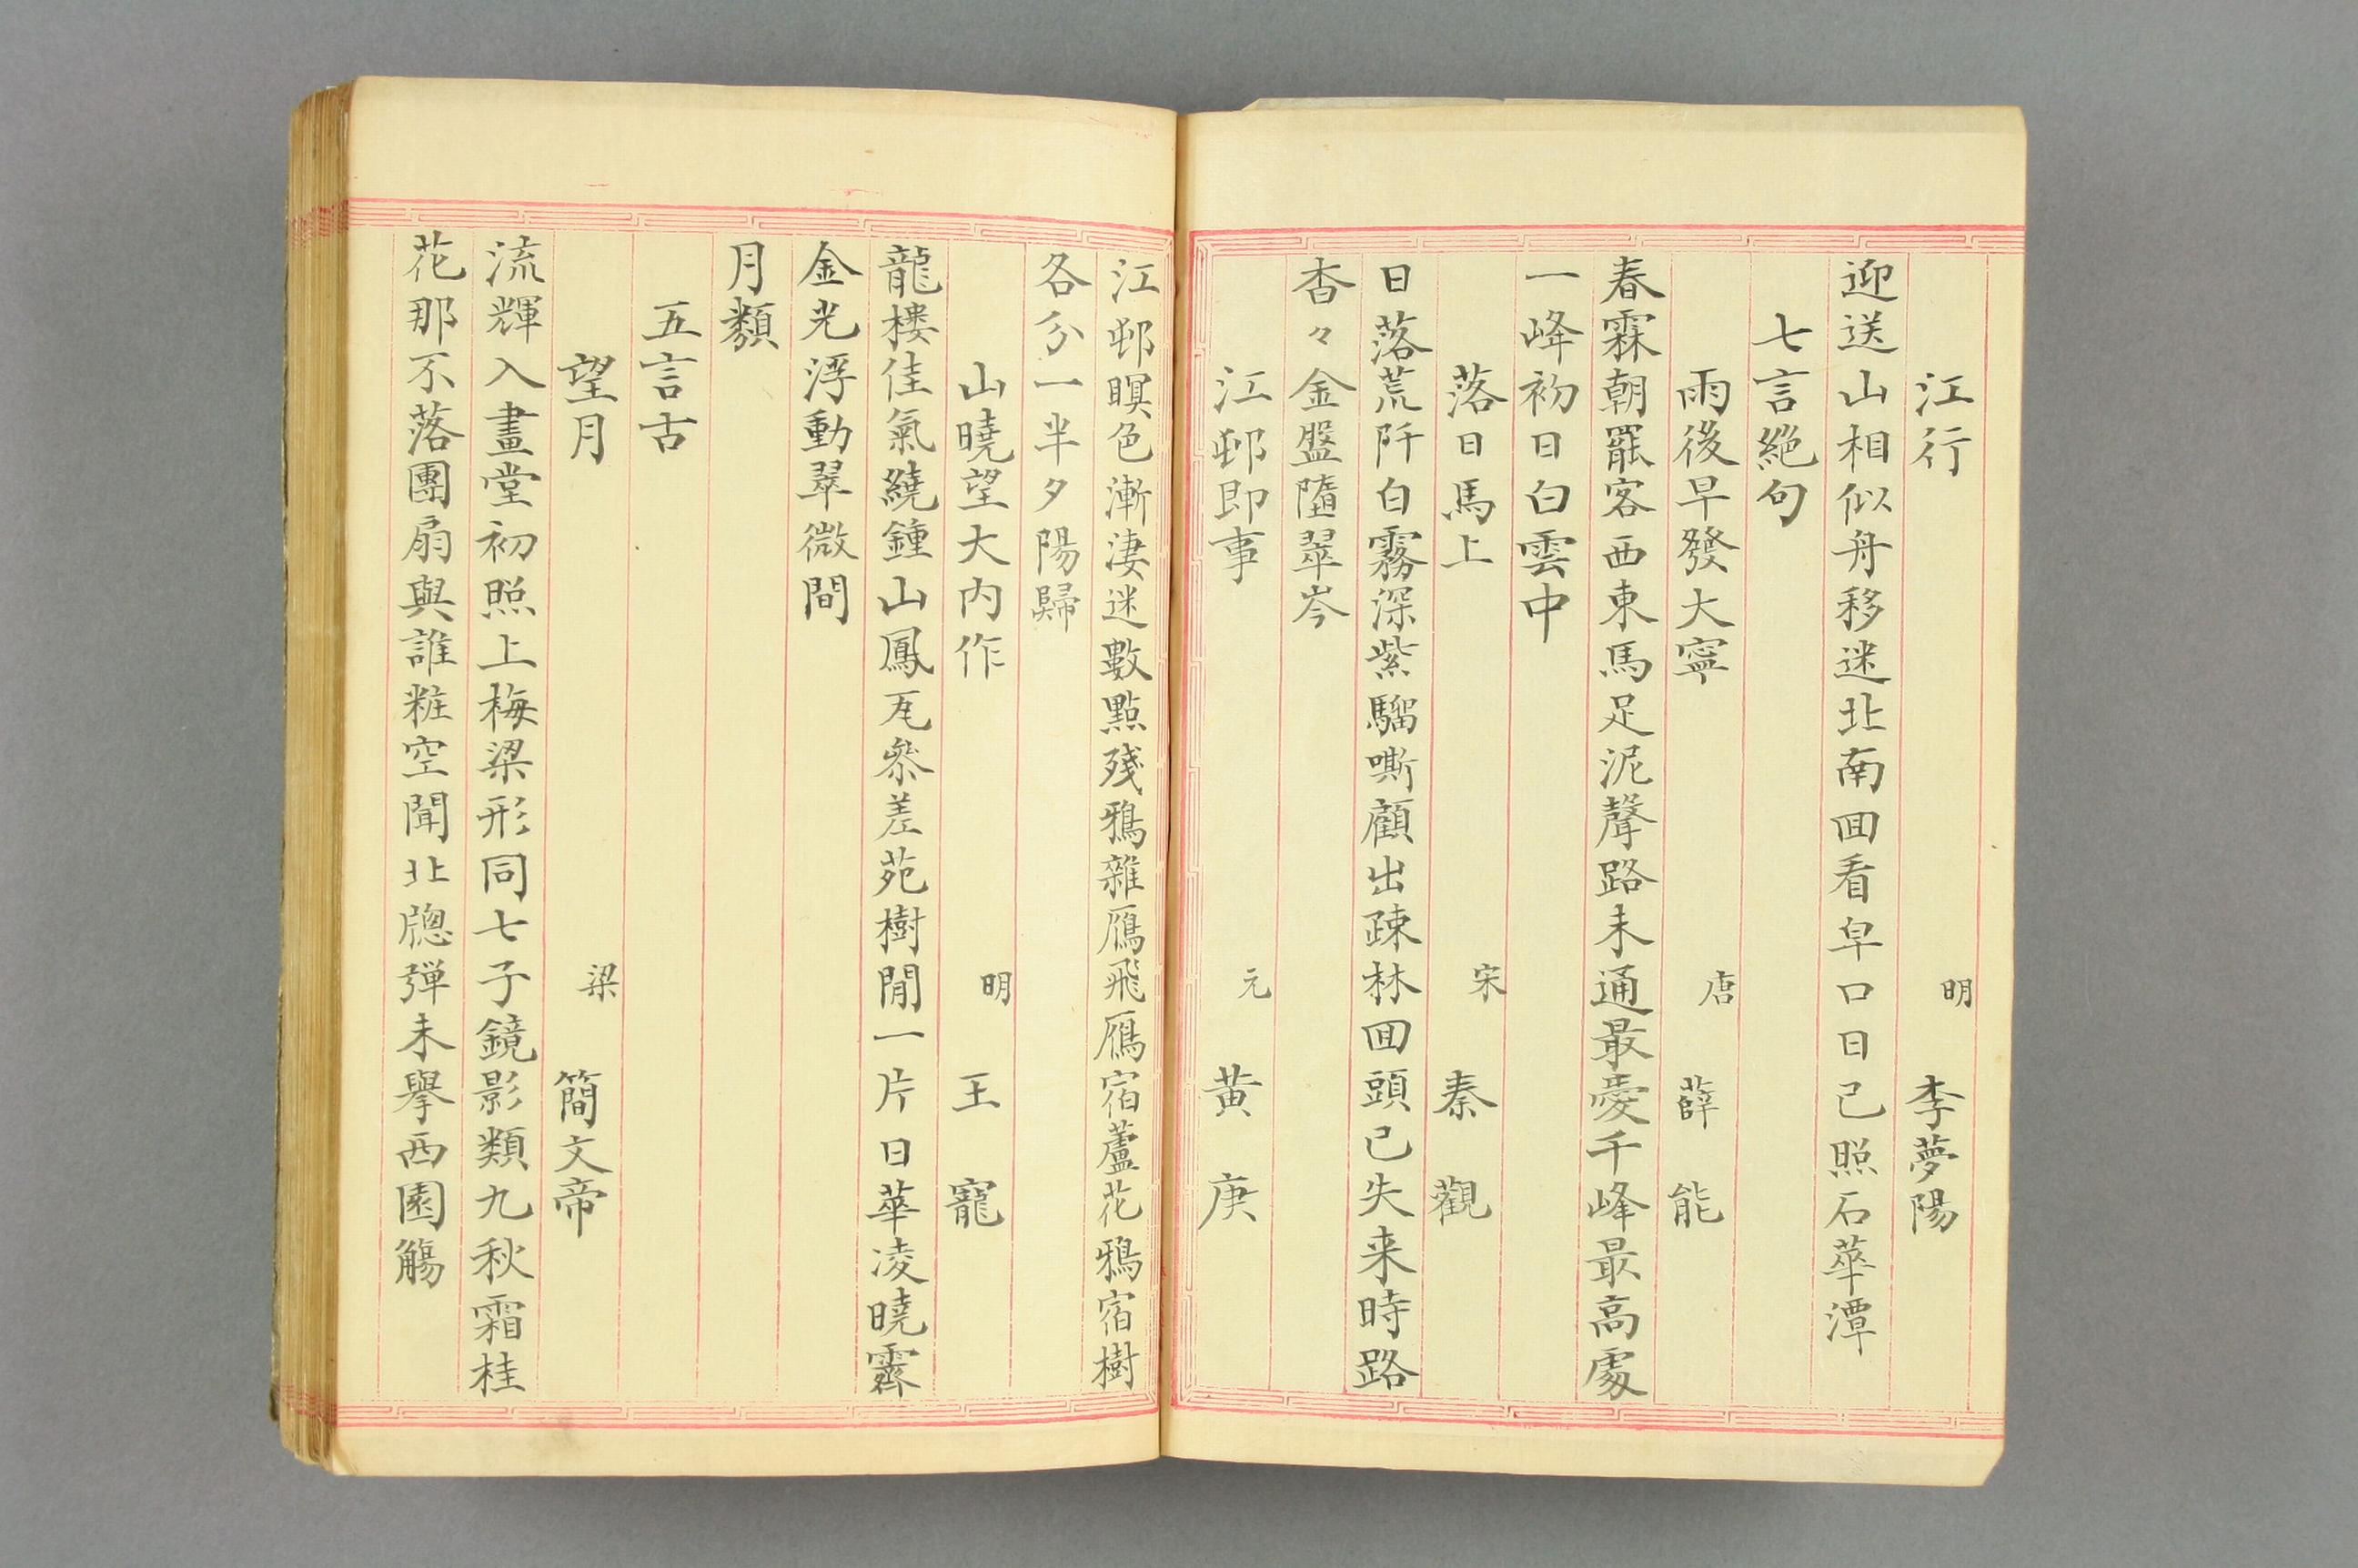 江行 明 李夢陽
迎送山相似舟移迷北南囬看皁口日已照石華潭
七言絶句
雨後早發大寧 唐 薛能
春霖朝罷客西東馬足泥聲路未通最愛千峰最高處
一峰初日白雲中
落日馬上 宋 秦觀
日落荒阡白霧深紫騮嘶顧出疎林囬頭已失来時路
杳々金盤隨翠岑
江邨即事 元 黃庚
江邨暝色漸淒迷數點殘鴉雜鴈飛鴈宿蘆花鴉宿樹
各分一半夕陽歸
山曉望大内作 明 王寵
龍樓佳氣繞鍾山鳳瓦參差苑樹閒一片日華凌曉霽
金光浮動翠微間
月類
五言古
望月 梁 簡文帝
流輝入畫堂初照上梅梁形同七子鏡影類九秋霜桂
花那不落團扇與誰粧空聞北牕彈未舉西園觴